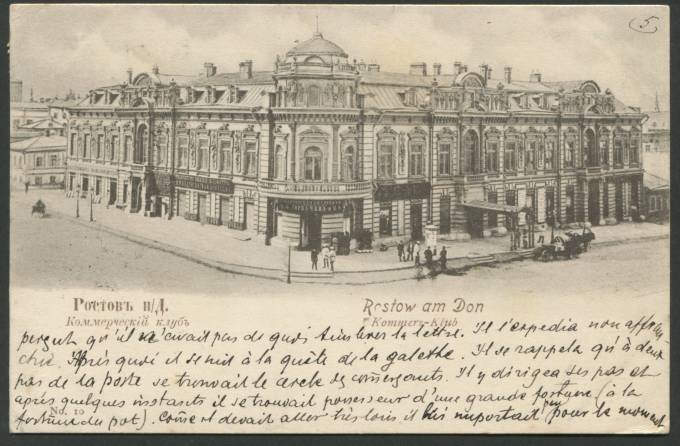 5
Ростовъ н/Д.
Rostow am Don
Коммерческій клубъ
Kommerz-Klub
perçut qu'il n'avait pas de quoi timbrer la lettre. Il l'expédia non affran
chie. Après quoi il se mit à la quête de la galette. Il se rappela qu'à deux
pas de la poste se trouvait le cercle des commerçants. Il y dirigea ses pas et
après quelques instants il se trouvait possesseur d'une grande fortune (à la
No. 10
fortune du pot). Come il devait aller très loin il lui importait peu pour le moment